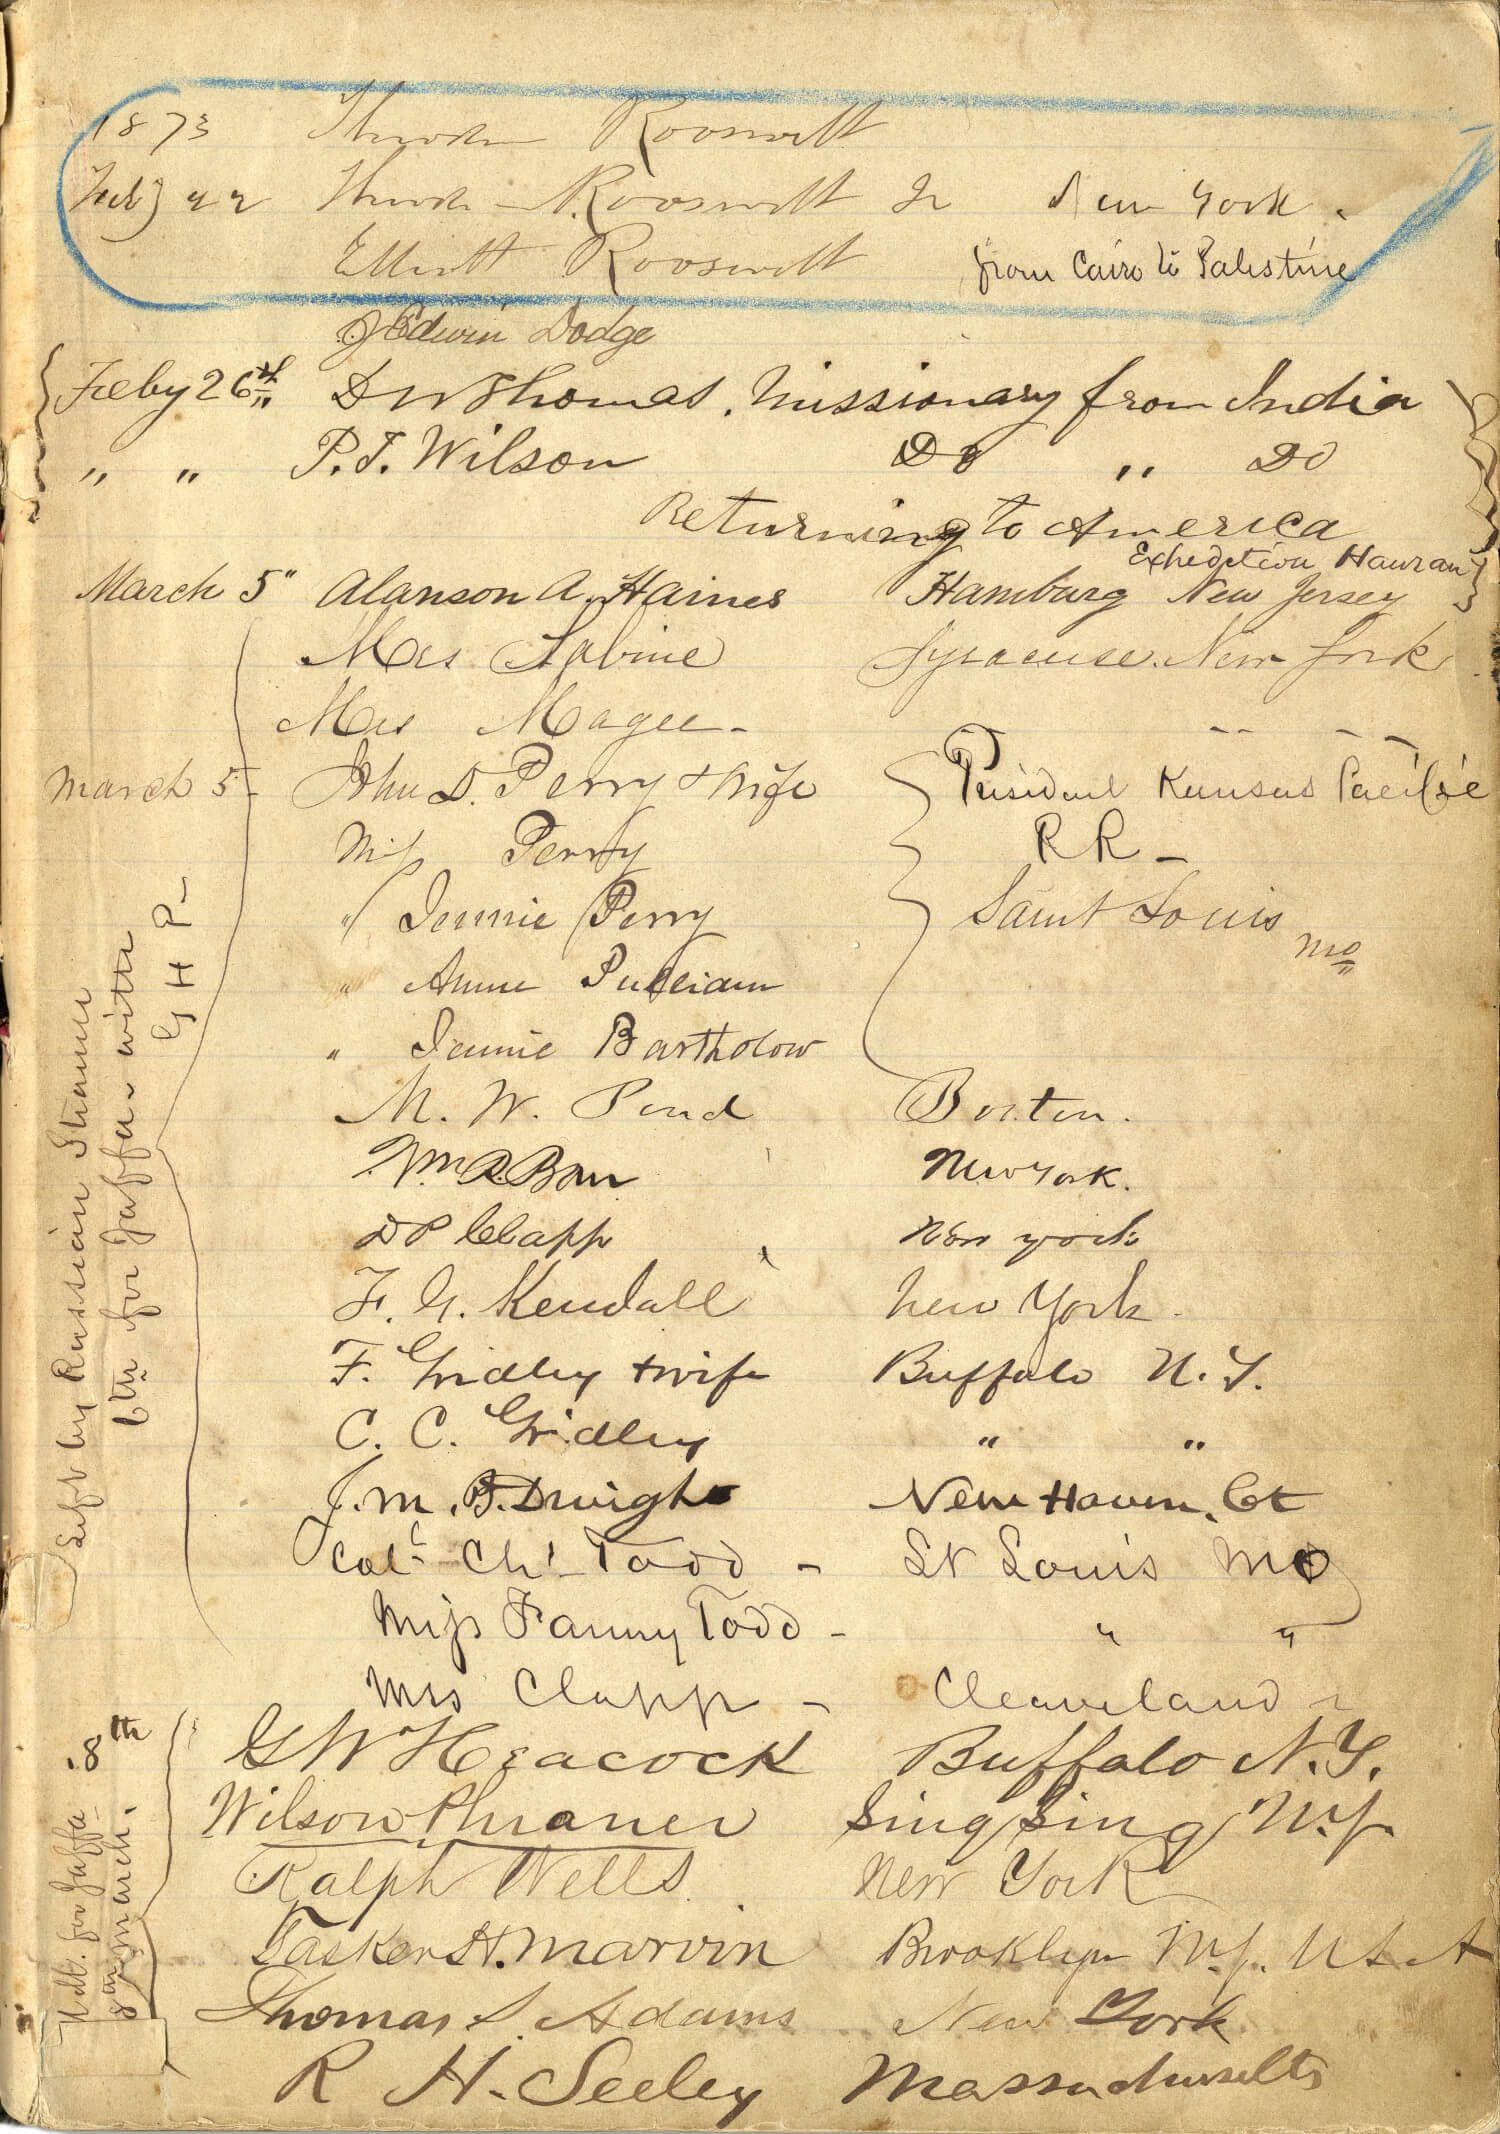 1873 Theodore Roosevelt
Feb) 22 Theodore Roosevelt Jr New York
Elliott Roosevelt from Cairo to Palestine
J Edwin Dodge
Feby 26th " D W Thomas, Missionary from India
" " P. T. Wilson Do " Do
Returning to America
Exhedition Hauran
March 5" Alanson A. Haines Hamburg New Jersey
Mrs Sabine Syracuse New York
Mrs Magee - " " " "
March 5- John D. Perry & Wife President Kansas Pacific
Miss Perry R R -
" Jennie Perry Saint Louis
Mo
" Annie Pulliam
" Jennie Bartholow
M. W. Pond Boston.
Wm A. New York.
D P Clapp New York
F. G. Kendall New York -
F. Gridley & wife Buffalo N. Y.
C. C. Gridley " "
J. M. B. Dwight New Haven, Ct
Col. Chs Todd - St Louis Mo
Miss Fanny Todd - " "
Mrs Clapp - Cleaveland -
G W Heacock Buffalo N. Y.
Wilson Phraner Sing Sing N.Y.
Ralph Wells New York
Tasker H. Marvin Brooklyn N.Y. U S A
Thomas S. Adams New York
R H. Seeley Massachusetts
Left by Russian Steamer
6th for Jaffa - with
G H P-
for Jaffa - 8th
8 March.